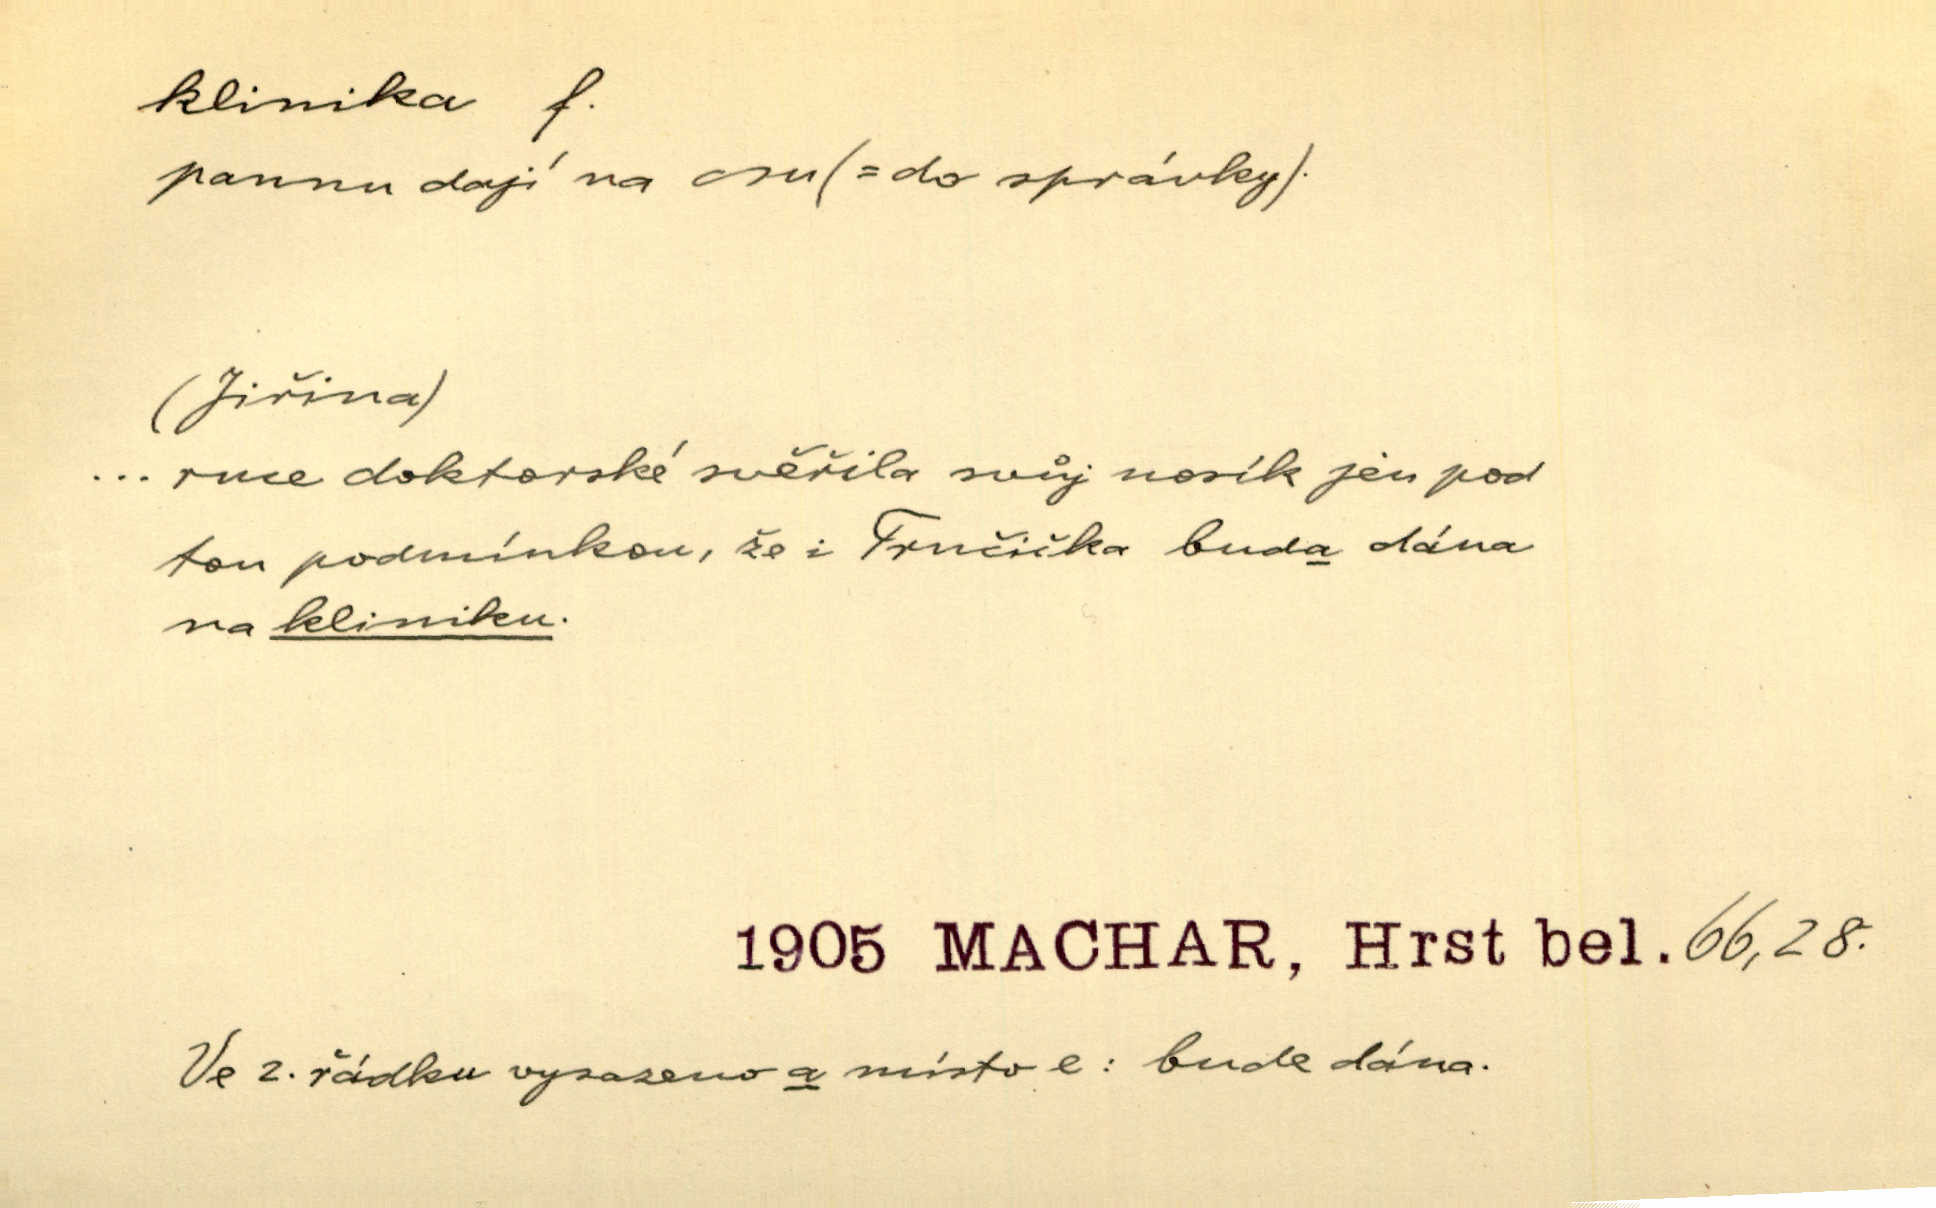 klinika f.
pannu dají na osu (= do správky).
(Jiřina)
... ruce doktorské svěřila svůj nosík jen pod
tou podmínkou, že i Trnčička buda dána
na kliniku.
1905 MACHAR, Hrst bel. 66,28.
Ve 2. řádku vysazeno a místo e: bude dána.